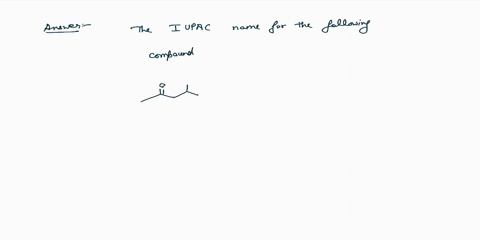 Answer:-
The IUPAC name for the following
compound
O